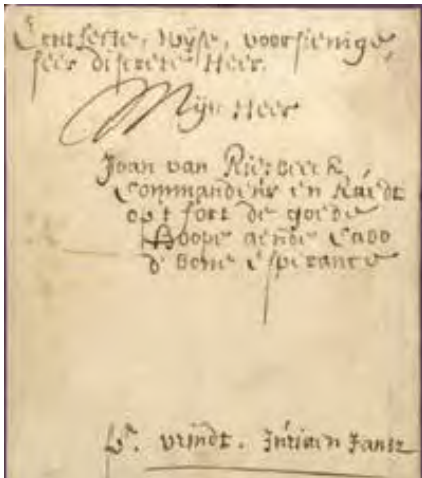 Erentfeste, wijse, voorsienige,
seer discrete Heer.
Mijn Heer
Joan van Riebeeck,
Commandeur en Raedt
opt fort de goede
Hoope aende Cabo
d' bone Esperance
vrijndt. Juriaen Jansz